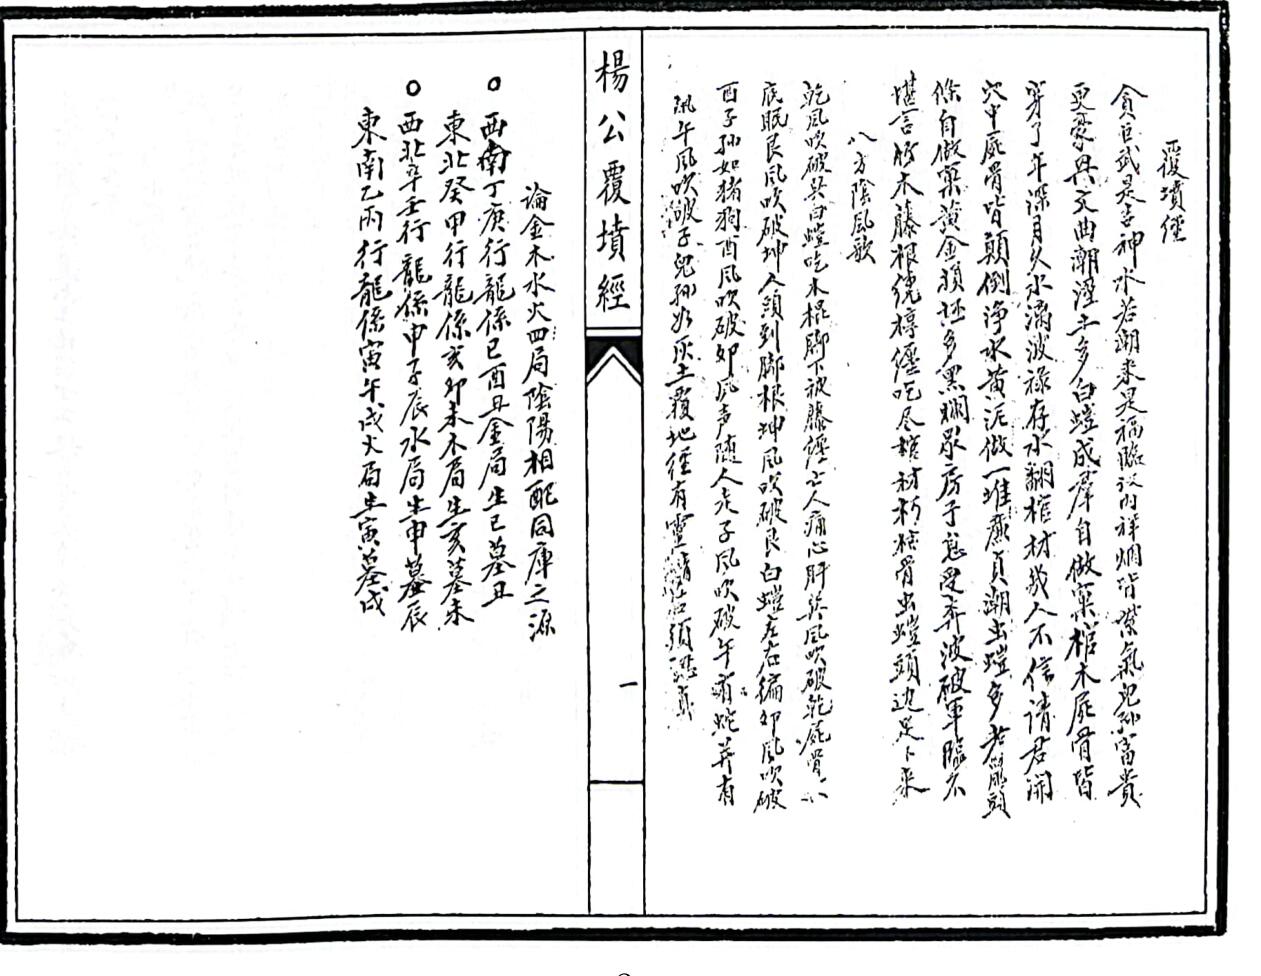 覆墳經
貪巨武是吉神水若潮來是福臨穴內祥烟皆紫氣兒孫富貴
更豪與文曲潮溼土多白螘成群自做窠棺木屍骨皆
穿了年深月久水滴波祿存水翻棺材幾人不信請君開
穴中屍骨皆顛倒淨水黃泥做一堆廉貞潮虫螘多老鼠頭
條自做窠黃金損坯多黑爛眾房子息受奔波破軍臨不
堪言竹木藤根繞棹纏吃尽棺材朽棺骨虫螘頭边足下來
八方陰風歌
乾風吹破巽白螘吃木棍脚下被藤纏亡人痛心肝巽風吹破乾屍骨
底眠艮風吹破坤人頭到脚根坤風吹破艮白螘左右编卯風吹破
酉子孫如猪狗酉風吹破卯風声随人走子風吹破午有蛇并有
鼠午風吹破子兒孫如灰土覆地經有靈
楊公覆墳經
一
論金木水火四局陰陽相配同庫之源
○西南丁庚行龍係巳酉丑金局生巳墓丑
東北癸甲行龍係亥卯未木局生亥墓未
○西北辛壬行龍係申子辰水局生申墓辰
東南乙丙行龍係寅午戌火局生寅墓戌